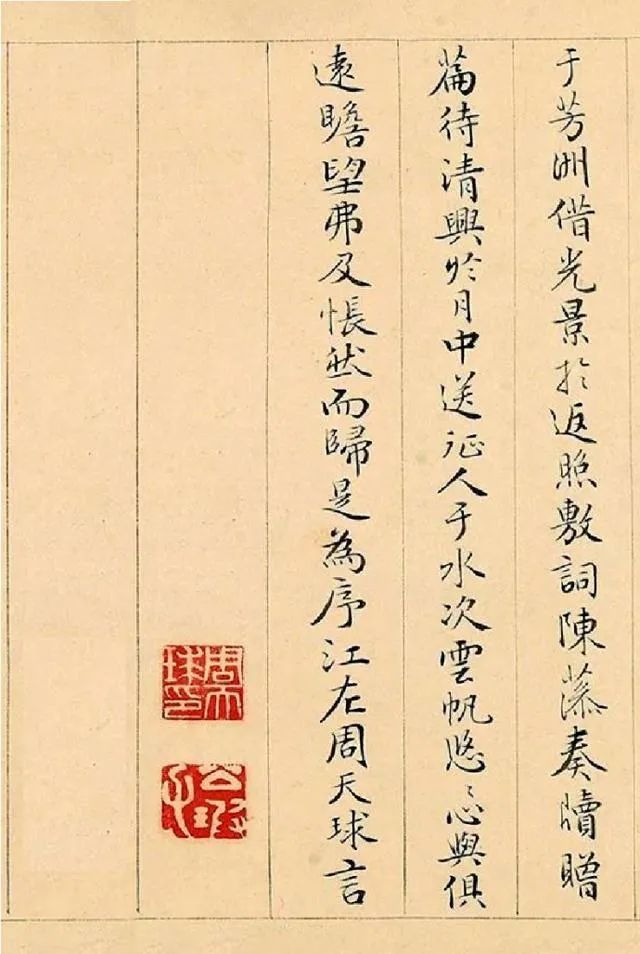 于芳洲借光景於返照敷詞陳慕奏牘贈
篇待清興於月中送征人于水次雲帆悠〻心與俱
遠瞻望弗及悵然而歸是為序江左周天球言
周天球印
公瑕